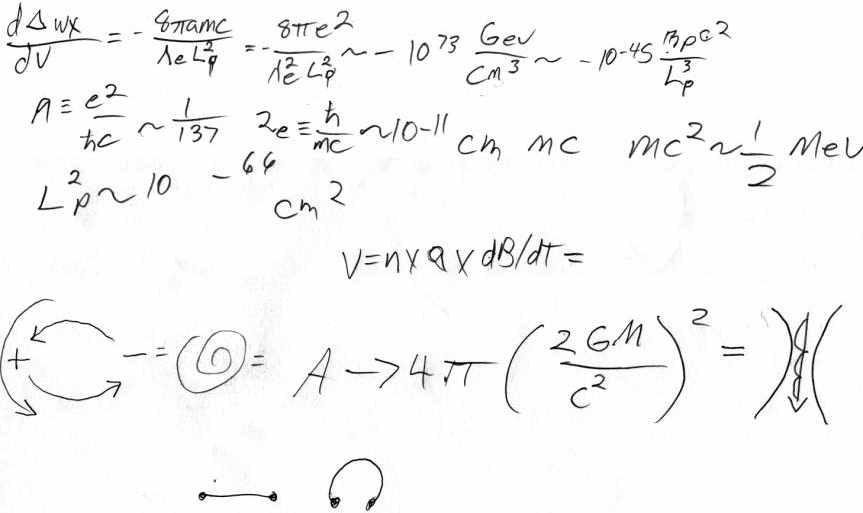 dΔwx/dV = - 8πamc/λe L²p = - 8πe²/λ²e L²p ~ - 10⁷³ Gev/cm³ ~ - 10⁻⁴⁵ mpc²/L³p
A ≡ e²/ħc ~ 1/137 λe ≡ ħ/mc ~ 10-11 cm mc mc² ~ 1/2 MeV
L²p ~ 10⁻⁶⁶ cm²
V=nxaxdB/dT=
+ - = = A → 4π (2GM/c²)² =